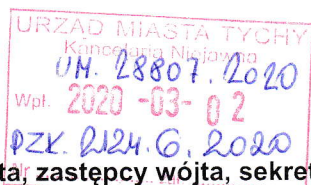 URZĄD MIASTA TYCHY
Kancelaria Niejawna
UM. 28807.2020
Wpł. 2020 -03- 02
PZK. 2124.6.2020
ta, zastępcy wójta, sekret